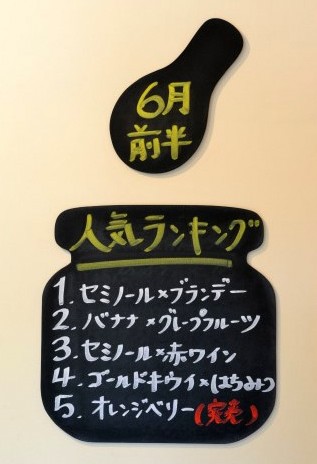 6月
前半
人気ランキング
1. セミノール×ブランデー
2. バナナ×グレープフルーツ
3. セミノール×赤ワイン
4. ゴールドキウイ×(はちみつ)
5. オレンジベリー(完売)